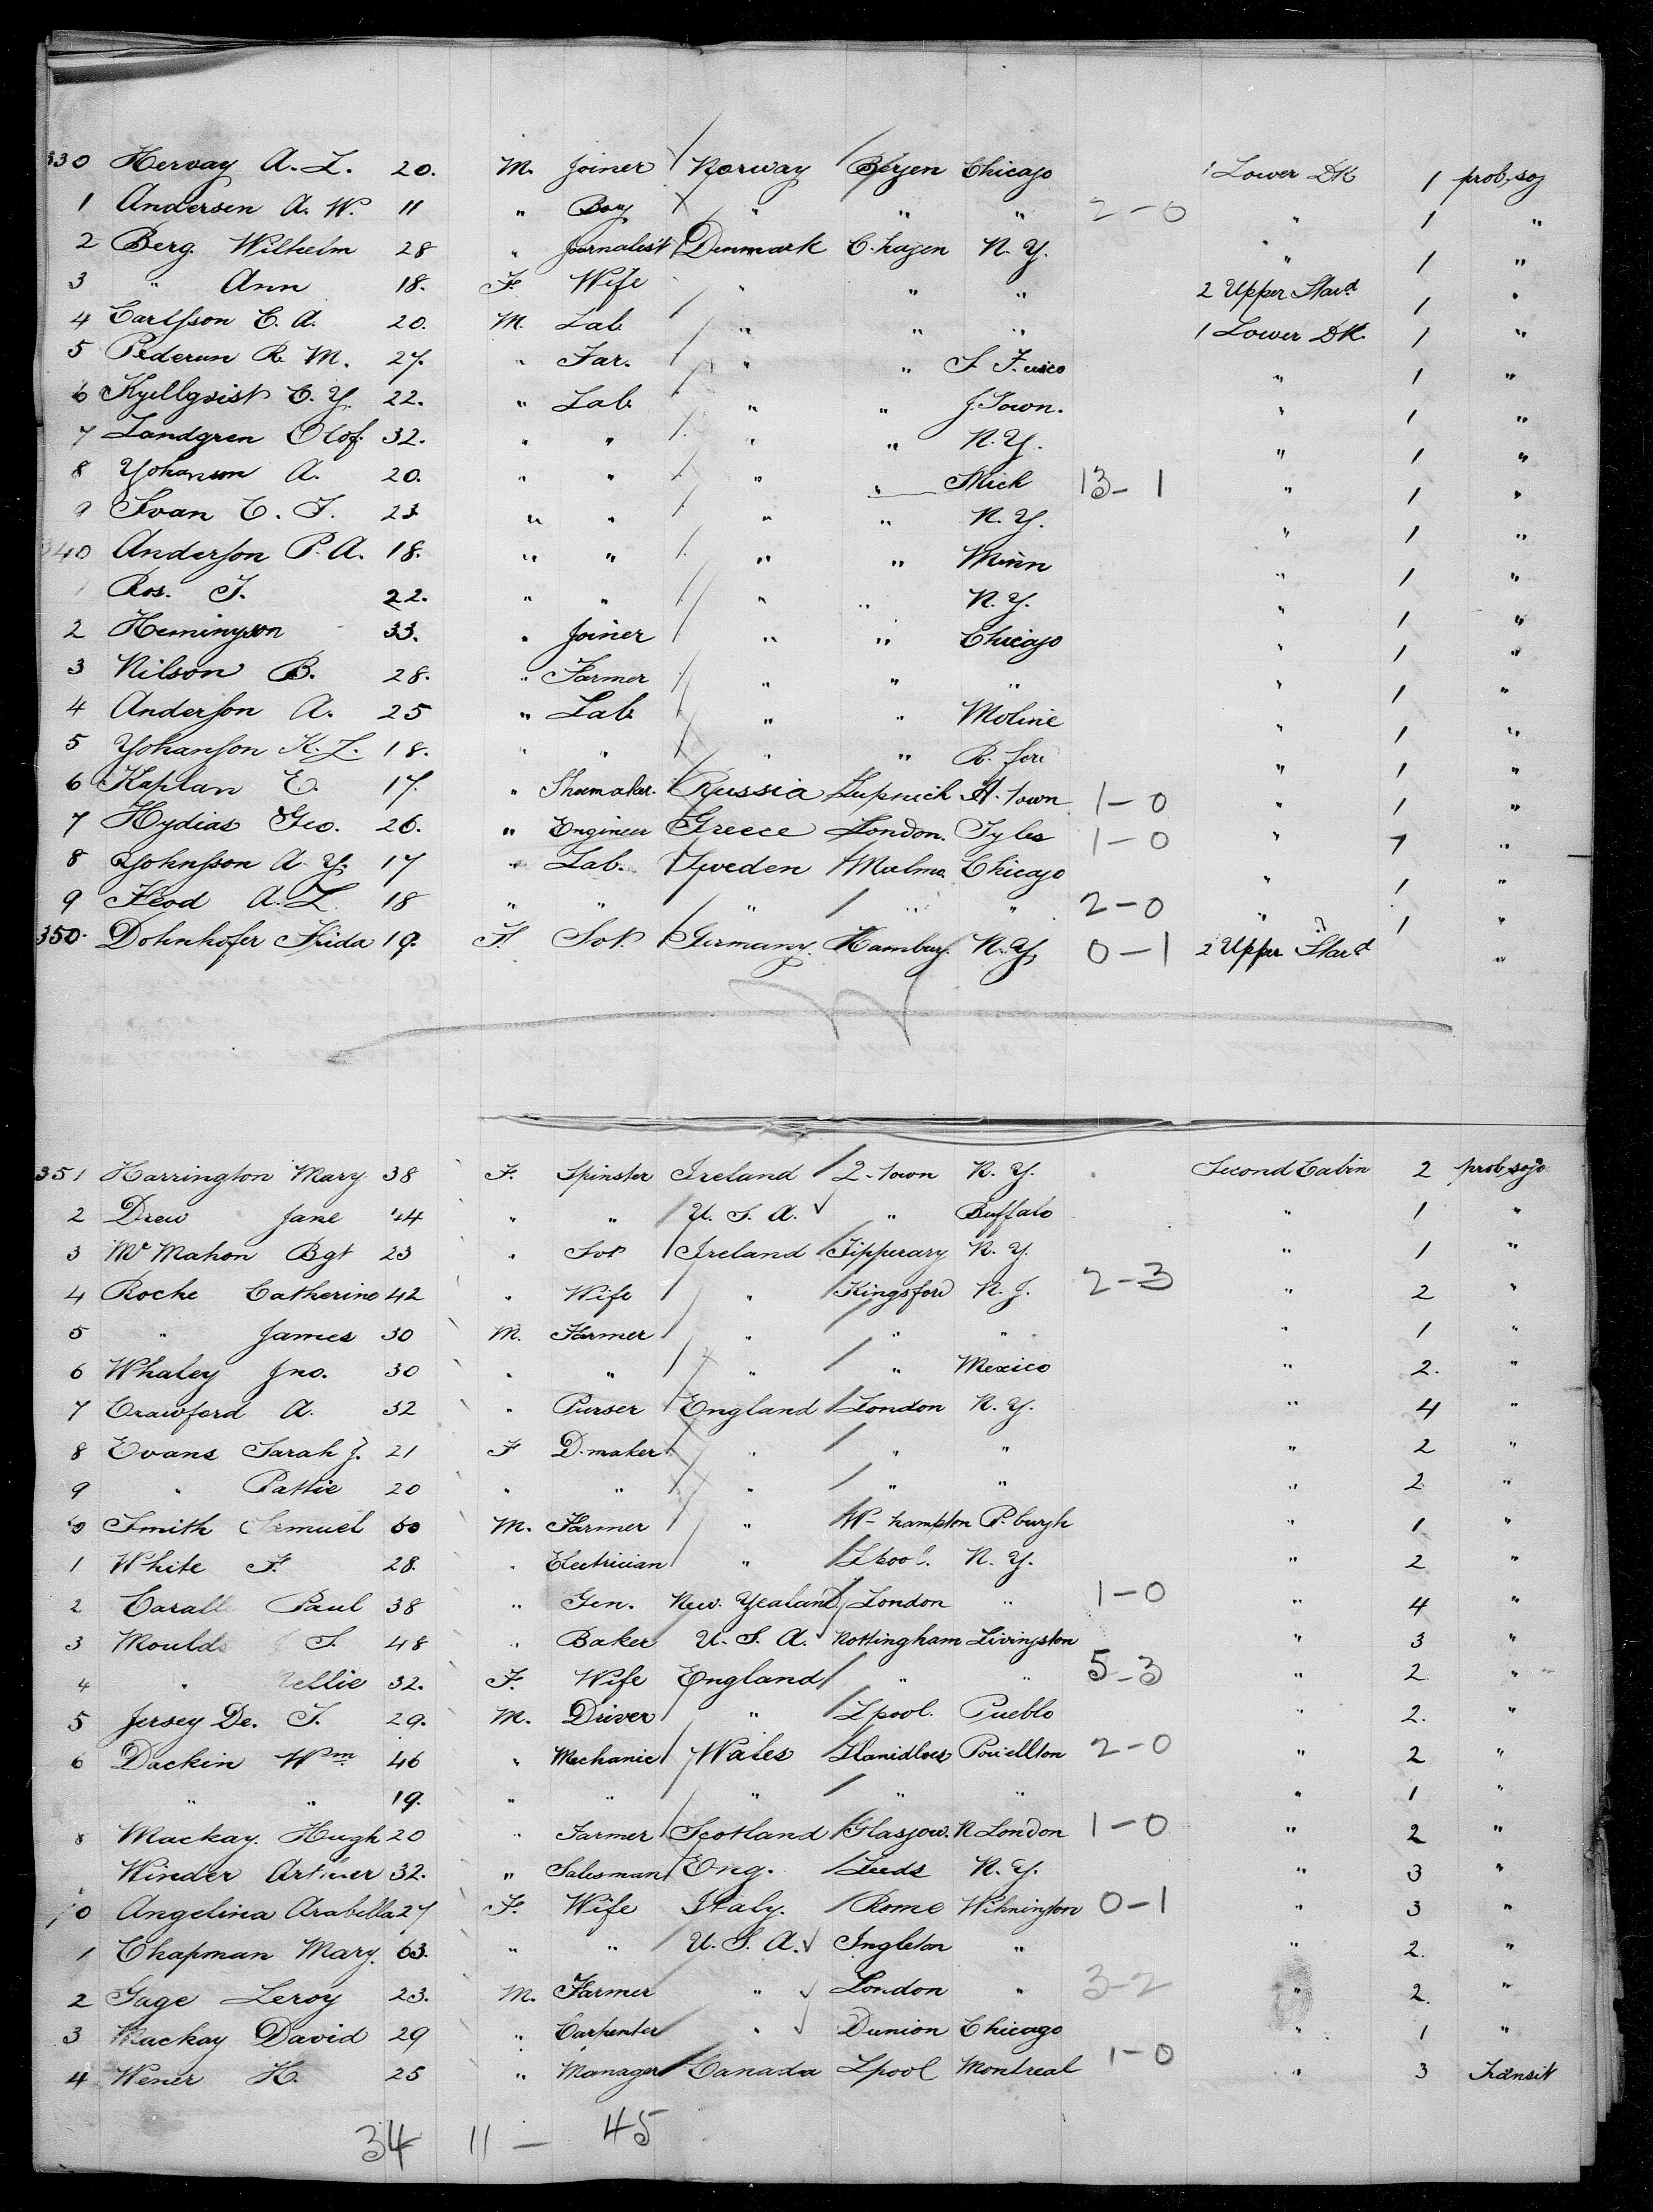 330 Hervay A. L. 20. M. Joiner Norway Bergen Chicago 1 Lower Dk 1 prob, soj
1 Andersen A. W. 11 " Boy " " " 2-0 " 1 "
2 Berg. Wilhelm 28 " Journalist Denmark C.hagen N. Y. " 1 "
3 " Ann 18. F. Wife " " " 2 Upper Star.d 1 "
4 Carlsson C. A. 20. M. Lab. " " " 1 Lower Dk. 1 "
5 Pedersen R. M. 27. " Far. " " S. F.cisco " 1 "
6 Kyellqvist C. Y. 22. " Lab. " " J. Town. " 1 "
7 Landgren Olof. 32. " " " " N. Y. " 1 "
8 Yohanson A. 20. " " " " Mich 13-1 " 1 "
9 Svan C. J. 23 " " " " N. Y. " 1 "
340 Anderson P. A. 18. " " " " Minn " 1 "
1 Ros. J. 22. " " " " N. Y. " 1 "
2 Hemingson 33. " Joiner " " Chicago " 1 "
3 Nilson B. 28. " Farmer " " " " 1 "
4 Anderson A. 25 " Lab. " " Moline " 1 "
5 Yohanson K. L. 18. " " " " R. ford " 1 "
6 Kaplan E. 17. " Shoemaker. Russia Town 1-0 " 1 "
7 Hydias Geo. 26. " Engineer Greece London. 1-0 " 1 "
8 Yohnsson A. Y. 17 " Lab. Sweden Malmo Chicago " 1 "
9 A. L. 18 " " " " " 2-0 " 1 "
350. Dohnhofer Frida 19. F. Svt. Germany. Hamburg. N. Y. 0-1 2 Upper Star.d 1 "
351 Harrington Mary 38 F. Spinster Ireland Q-Town N. Y. Second Cabin 2 prob, sojo
2 Drew Jane 44 " " U. S. A. " Buffalo " 1 "
3 Mc Mahon Bgt 23 " Svt Ireland Tipperary N. Y. " 1 "
4 Roche Catherine 42 " Wife " Kingsford N. J. 2-3 " 2 "
5 " James 30 M. Farmer " " " " 1 "
6 Whaley Jno. 30 " " " " Mexico " 2. "
7 Crawford A. 32 " Purser England London N. Y. " 4 "
8 Evans Sarah J. 21 F D.maker " " " " 2 "
9 " Pattie 20 " " " " " " 2 "
60 Smith Samuel 60 M. Farmer " W-hampton P.burgh " 1 "
1 White F. 28. " Electrician " Lpool. N. Y. " 2 "
2 Carall Paul 38 " Gen. New. Yealand London " 1-0 " 4 "
3 Moulds J. 48 " Baker U. S. A. Nottingham Livingston " 3 "
4 " Nellie 32. F. Wife England " " 5-3 " 2 "
5 Jersey De. J. 29. M. Driver " Lpool. Pueblo " 2. "
6 Dackin Wm 46 " Mechanic Wales Llanidloes Powellton 2-0 " 2 "
" " 19. " " " " " " 1 "
8 Mackay. Hugh 20 " Farmer Scotland Glasgow. N London 1-0 " 2 "
Winder Arthur 32. " Salesman Eng. Leeds N. Y. " 3 "
0 Angelina Arabella 27 F. Wife Italy. Rome Wilmington 0-1 " 3 "
1 Chapman Mary. 63. " " U. S. A. Ingleton " " 2. "
2 Gage Leroy 23. M. Farmer " London " 3-2 " 2. "
3 Mackay David 29 " Carpenter " Dunion Chicago " 1 "
4 Wener H. 25 " Manager Canada Lpool Montreal 1-0 " 3 Transit
34 11 - 45